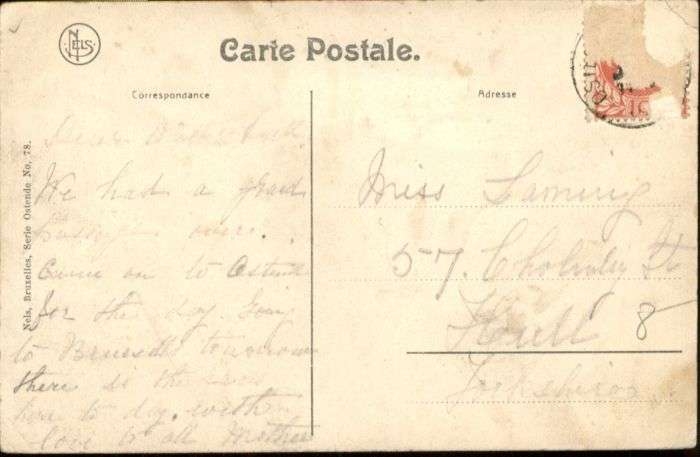 NELS
Carte Postale.
Correspondance
Adresse
Nels, Bruxelles, Serie Ostende No. 78.
Dear
We had a grand
passage over.
Came on to Ostend
for the day. Going
to Brussels tomorrow
there is the
here to day. with
love to all Mother
Miss Laming
57. Cholmley St
Hull 8
Yorkshire.